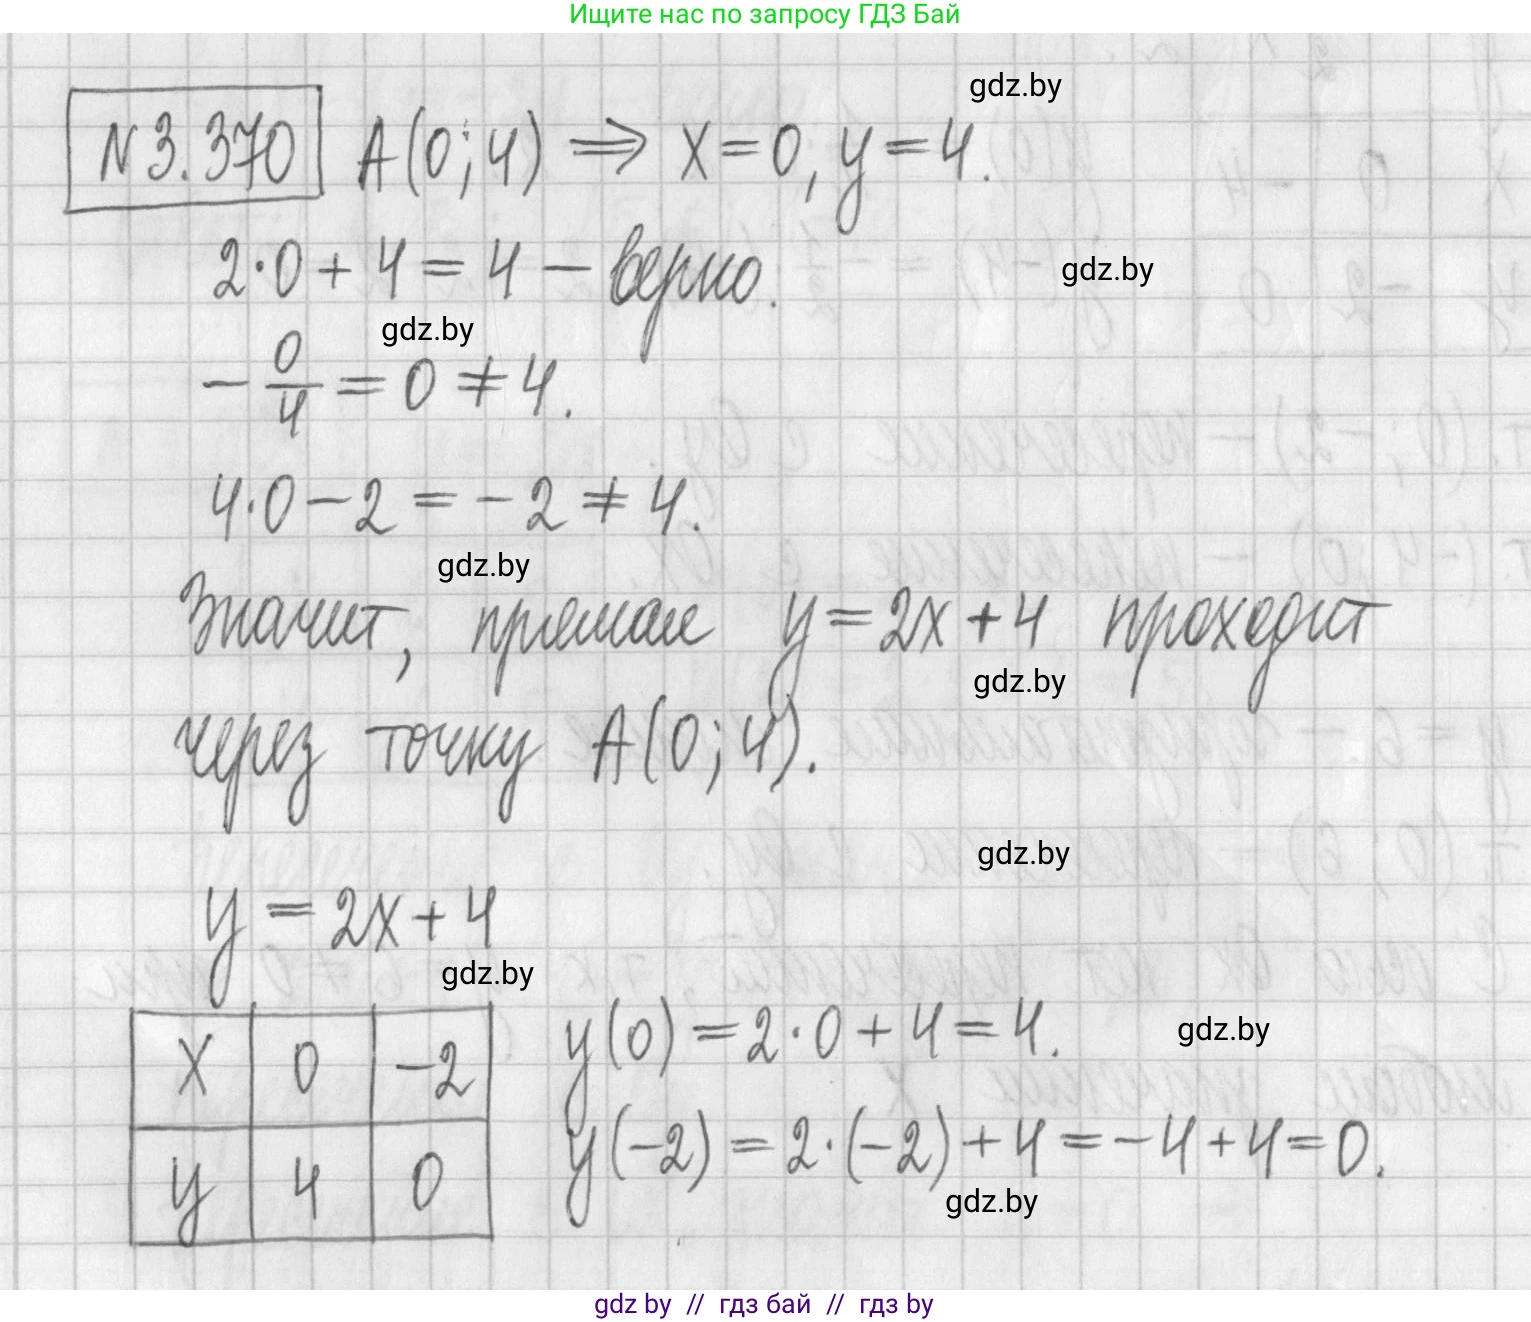 Ищите нас по запросу ГДЗ Бай
gdz.by
№3.370 A(0;4) ⇒ x=0, y=4.
2·0+4=4 – верно.
gdz.by
gdz.by
-0/4=0≠4.
4·0-2=-2≠4.
gdz.by
Значит, прямая y=2x+4 проходит
gdz.by
через точку A(0;4).
gdz.by
y=2x+4
gdz.by
x 0 -2
y(0)=2·0+4=4.
gdz.by
y 4 0
y(-2)=2·(-2)+4=-4+4=0.
gdz.by
gdz by // гдз бай // гдз by